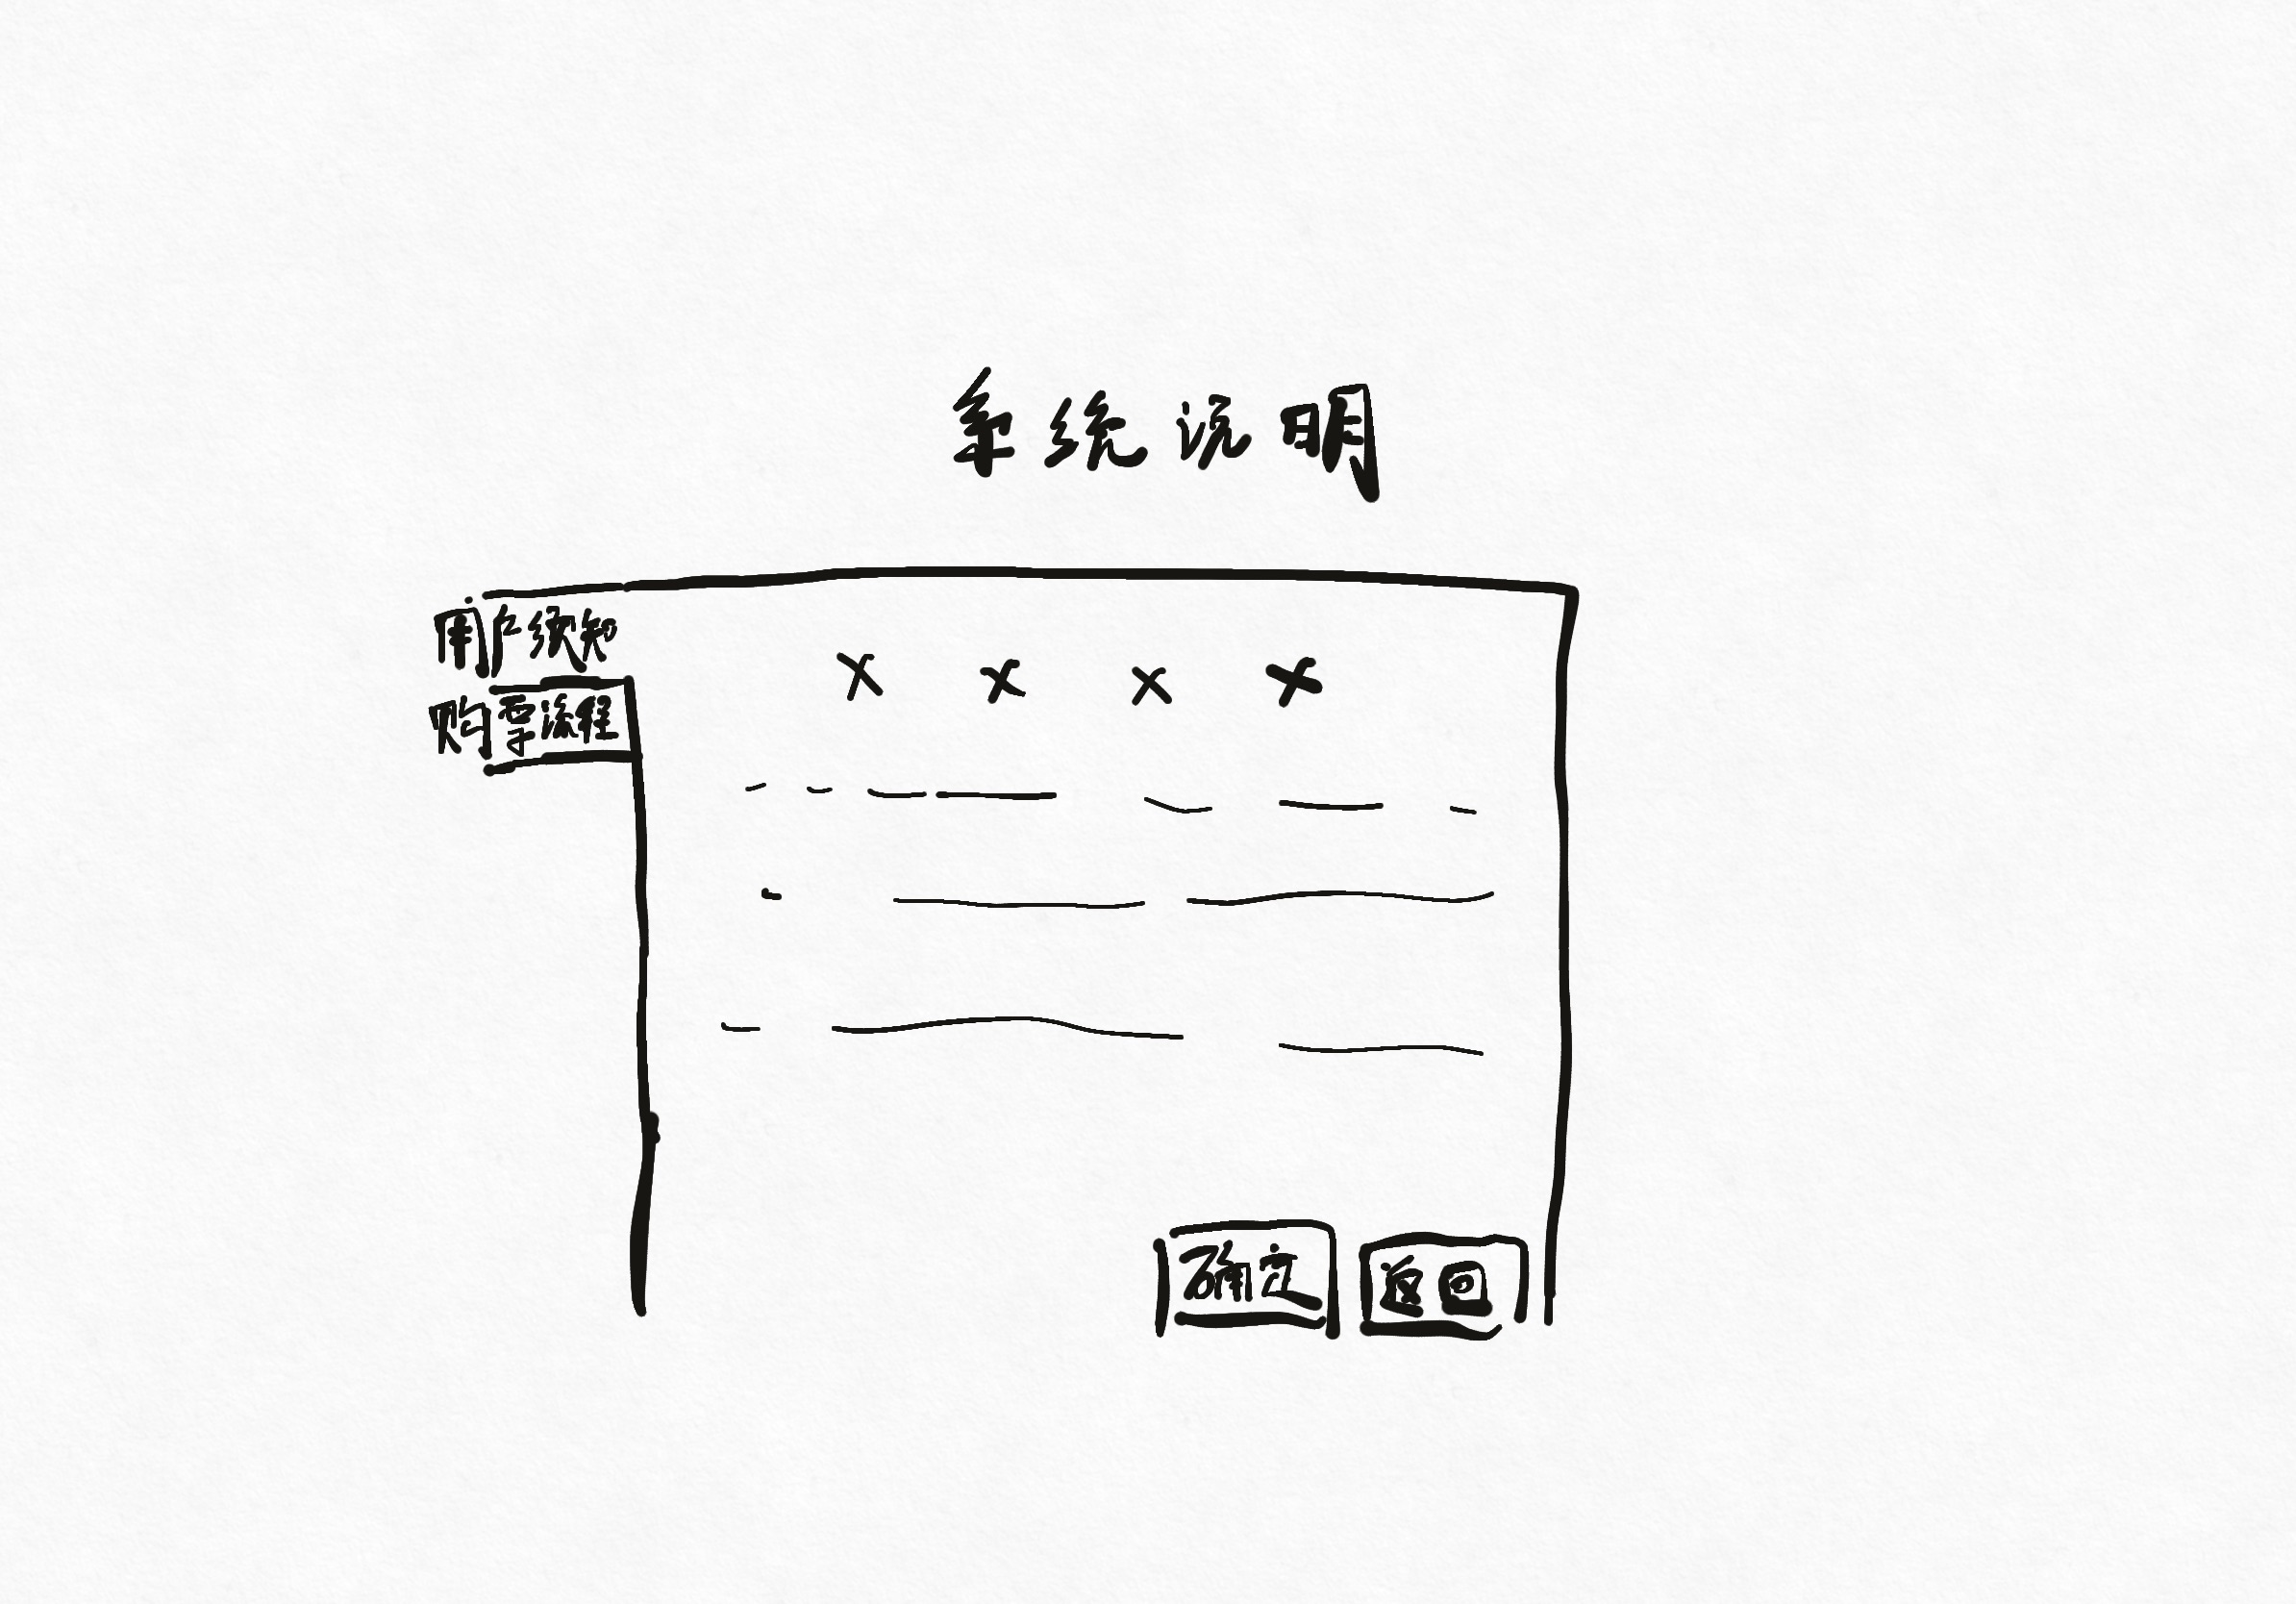 系统说明
用户须知
购票流程
x x x x
确定 返回